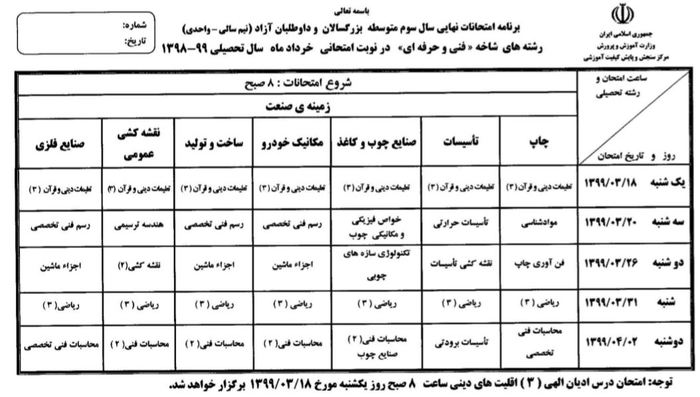 باسمه تعالی
جمهوری اسلامی ایران
وزارت آموزش و پرورش
مرکز سنجش و پایش کیفیت آموزشی
برنامه امتحانات نهایی سال سوم متوسطه بزرگسالان و داوطلبان آزاد (نیم سالی - واحدی)
رشته های شاخه « فنی و حرفه ای » در نوبت امتحانی خرداد ماه سال تحصیلی ۹۹-۱۳۹۸
شماره:
تاریخ:
ساعت امتحان و رشته تحصیلی
روز و تاریخ امتحان
شروع امتحانات : ۸ صبح
زمینه ی صنعت
چاپ تأسیسات صنایع چوب و کاغذ مکانیک خودرو ساخت و تولید نقشه کشی عمومی صنایع فلزی
یک شنبه ۱۳۹۹/۰۳/۱۸ تعلیمات دینی و قرآن (۳) تعلیمات دینی و قرآن (۳) تعلیمات دینی و قرآن (۳) تعلیمات دینی و قرآن (۳) تعلیمات دینی و قرآن (۳) تعلیمات دینی و قرآن (۳) تعلیمات دینی و قرآن (۳)
سه شنبه ۱۳۹۹/۰۳/۲۰ موادشناسی تأسیسات حرارتی خواص فیزیکی و مکانیکی چوب رسم فنی تخصصی رسم فنی تخصصی هندسه ترسیمی رسم فنی تخصصی
دو شنبه ۱۳۹۹/۰۳/۲۶ فن آوری چاپ نقشه کشی تأسیسات تکنولوژی سازه های چوبی اجزاء ماشین اجزاء ماشین نقشه کشی(۲) اجزاء ماشین
شنبه ۱۳۹۹/۰۳/۳۱ ریاضی (۳) ریاضی (۳) ریاضی (۳) ریاضی (۳) ریاضی (۳) ریاضی (۳) ریاضی (۳)
دوشنبه ۱۳۹۹/۰۴/۰۲ محاسبات فنی تخصصی تأسیسات برودتی محاسبات فنی (۲) صنایع چوب محاسبات فنی (۲) محاسبات فنی (۲) محاسبات فنی (۲) محاسبات فنی تخصصی
توجه: امتحان درس ادیان الهی ( ۳ ) اقلیت های دینی ساعت ۸ صبح روز یکشنبه مورخ ۱۳۹۹/۰۳/۱۸ برگزار خواهد شد.